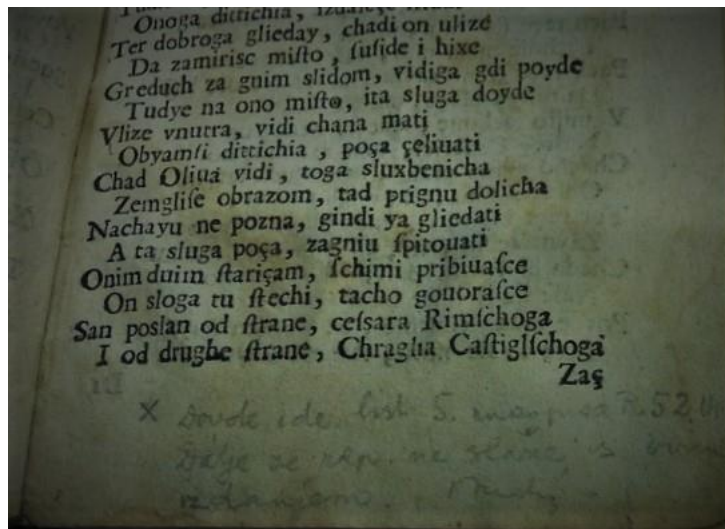 Onoga dittichia,
Ter dobroga glieday, chadi on ulize
Da zamirisc miſto, ſuſide i hixe
Greduch za gnim slidom, vidiga gdi poyde
Tudye na ono miſto, ita sluga doyde
Vlize vnutra, vidi chana mati
Obyamſi dittichia, poça çeliuati
Chad Oliua vidi, toga sluxbenicha
Zemgliſe obrazom, tad prignu dolicha
Nachayu ne pozna, gindi ya gliedati
A ta sluga poça, zagniu ſpitouati
Onim duim ſtariçam, ſchimi pribiuaſce
On sloga tu ſtechi, tacho gouoraſce
San poslan od ſtrane, ceſsara Rimſchoga
I od drughe ſtrane, Chraglia Caſtiglſchoga
Zaş
x Dovde ide list 5.
Dalje se na